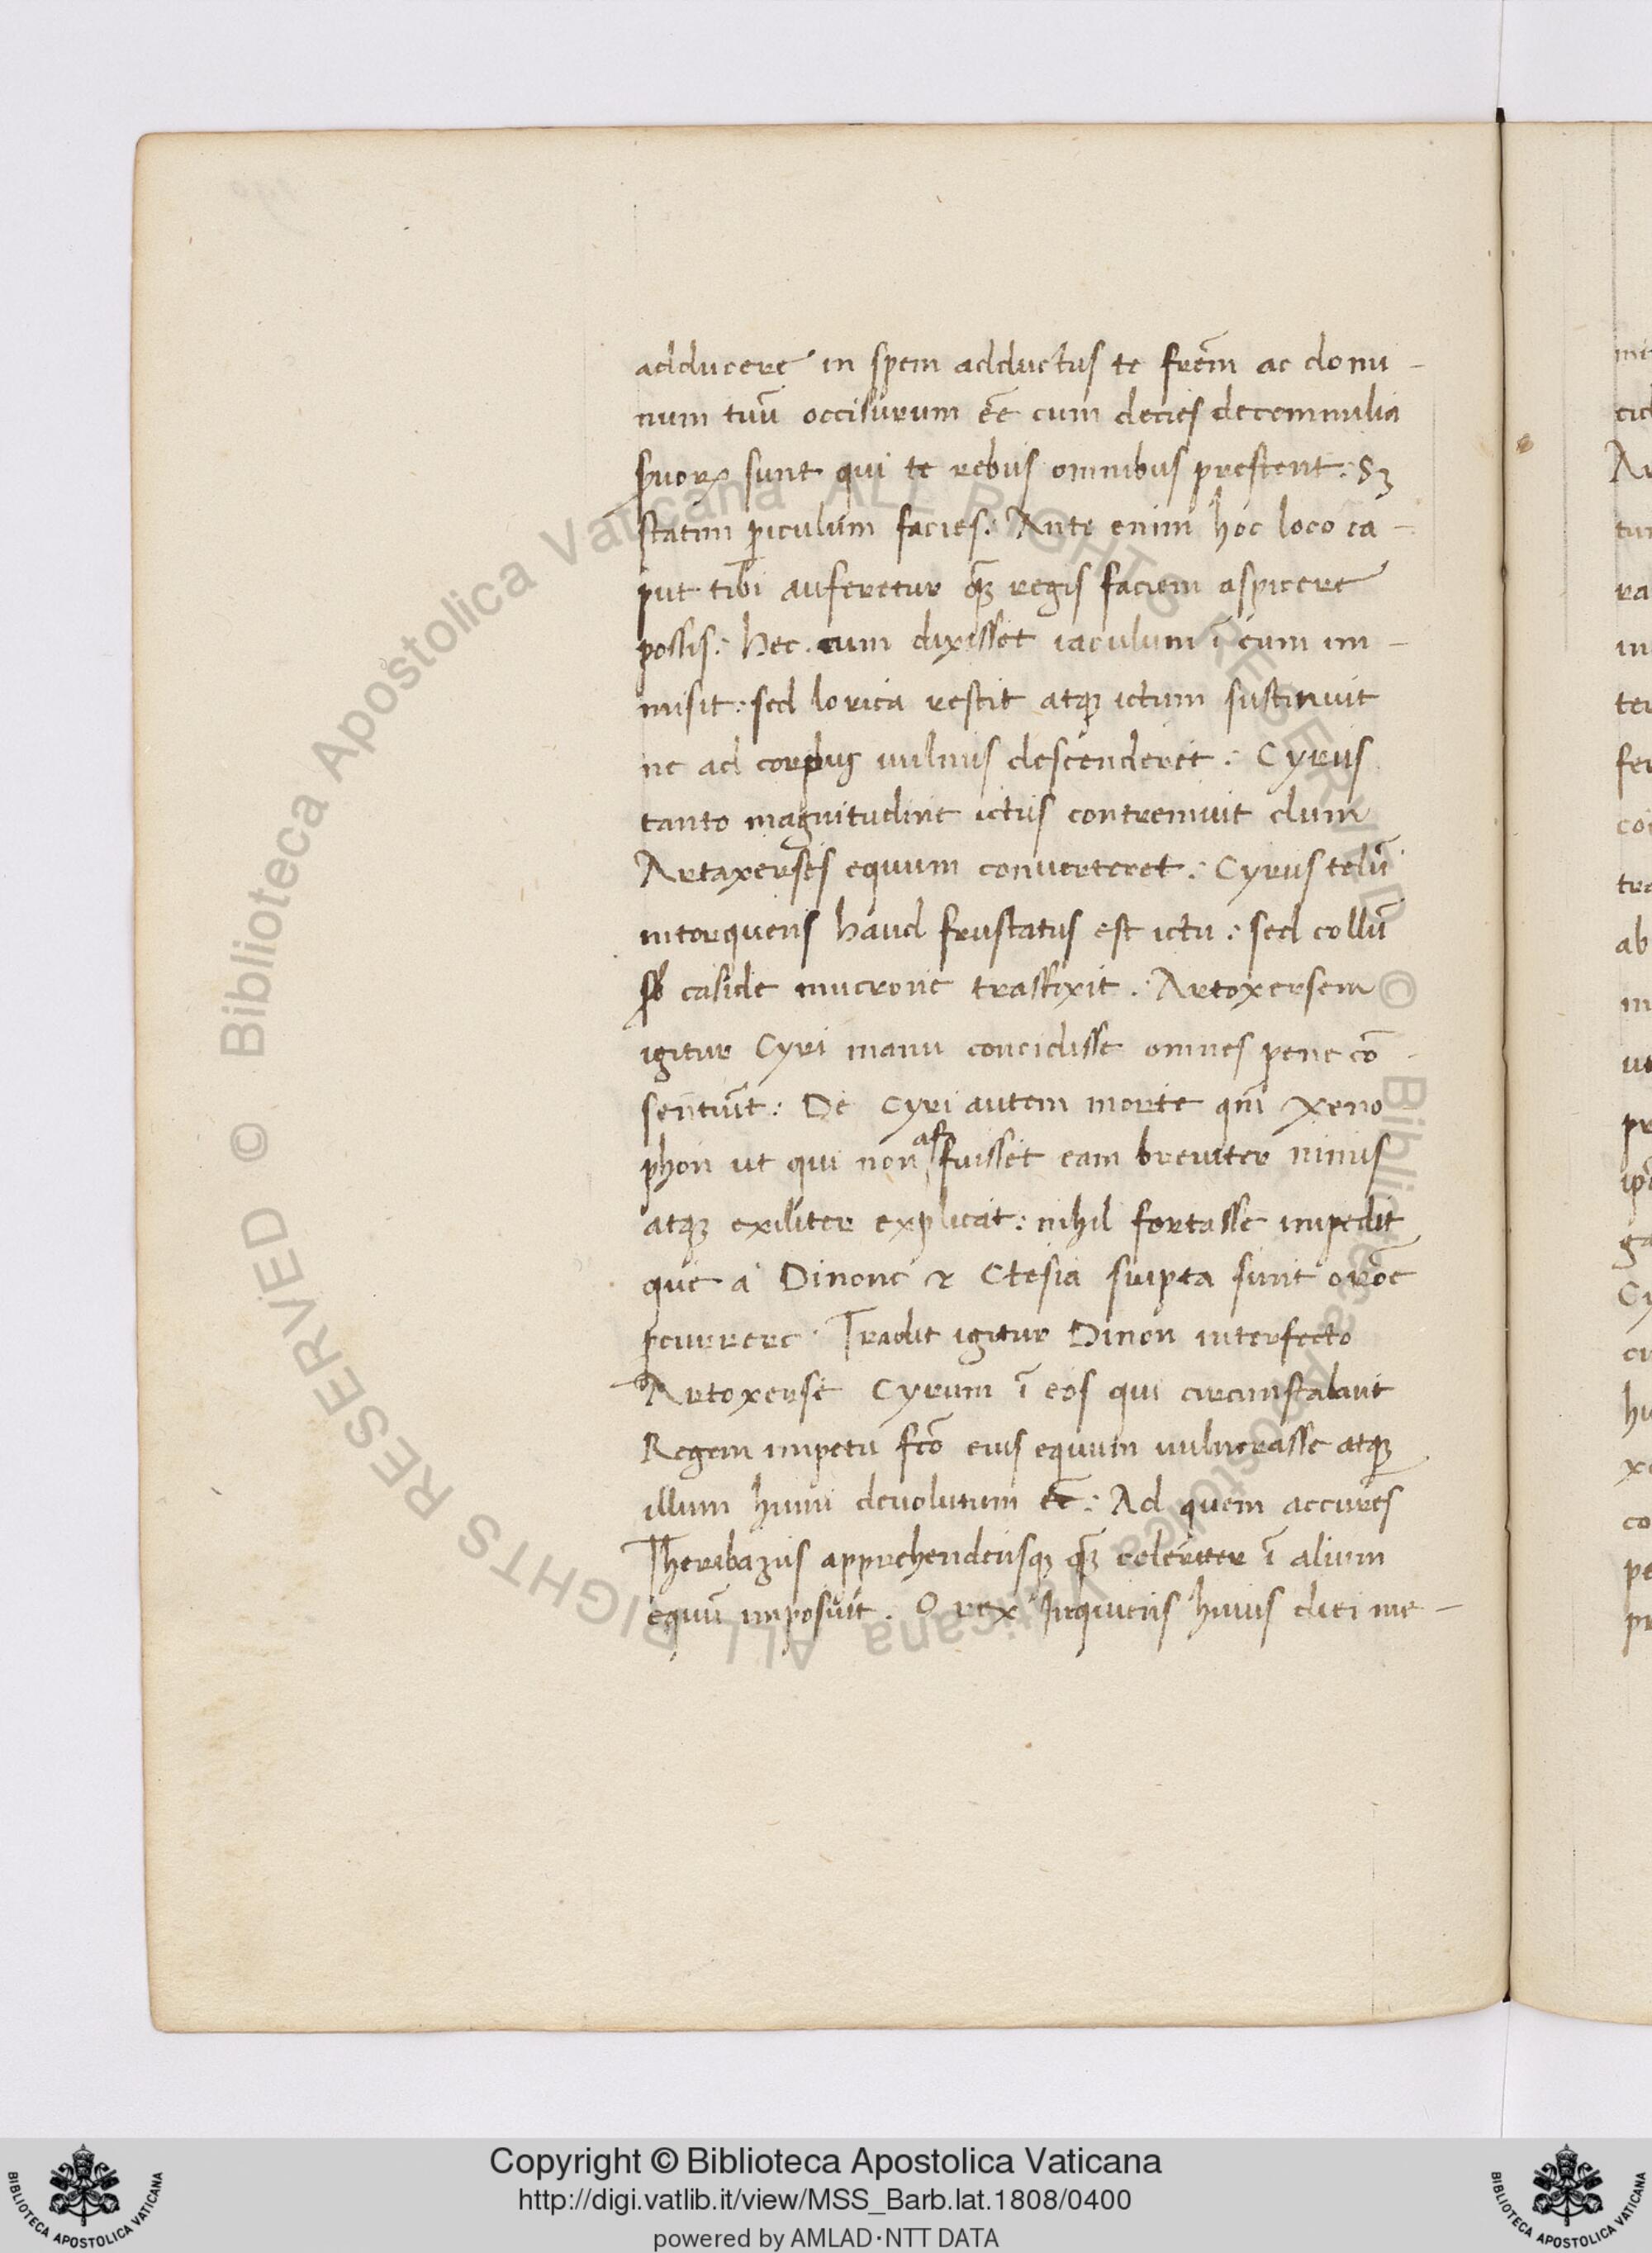 adducere in spem adductus te frēm ac domi-
num tuū occisurum eē cum decies decemmilia
suorꝝ sunt qui te rebus omnibus prestent: sꝫ
statim ꝑiculum facies: Ante enim hoc loco ca-
put tibi auferetur ꝙꝫ regis faciem aspicere
possis: hec cum dixisset iaculum ī eum im-
misit: sed lorica restit atqꝫ ictum sustinuit
ne ad corpus vulnus descenderet: Cyrus
tanto magnitudine ictus contremuit dum
Artaxerses equum converteret: Cyrus telū
intorquens haud frustatus est ictu: sed collū
sb caside mucrone trasfixit. Artoxersem
igitur Cyri manu concidisse omnes pene cō-
sentiūt: De Cyri autem morte qm̄ xeno
phon ut qui non affuisset eam breviter nimis
atqꝫ exiliter explicat: nihil fortasse impedit
que a Dinone & Ctesia scripta sunt orōe
ꝑcurrere. Tradit igitur Dinon interfecto
Artoxerse Cyrum ī eos qui circumstabant
Regem impetu fcō eius equum vulnerasse atqꝫ
illum humi devolutum eē: Ad quem accures
Theribazus apprehendensqꝫ ꝙꝫ celeriter ī alium
equū imposuit. O rex Inquiens huius diei me-
Copyright © Biblioteca Apostolica Vaticana
http://digi.vatlib.it/view/MSS_Barb.lat.1808/0400
powered by AMLAD·NTT DATA